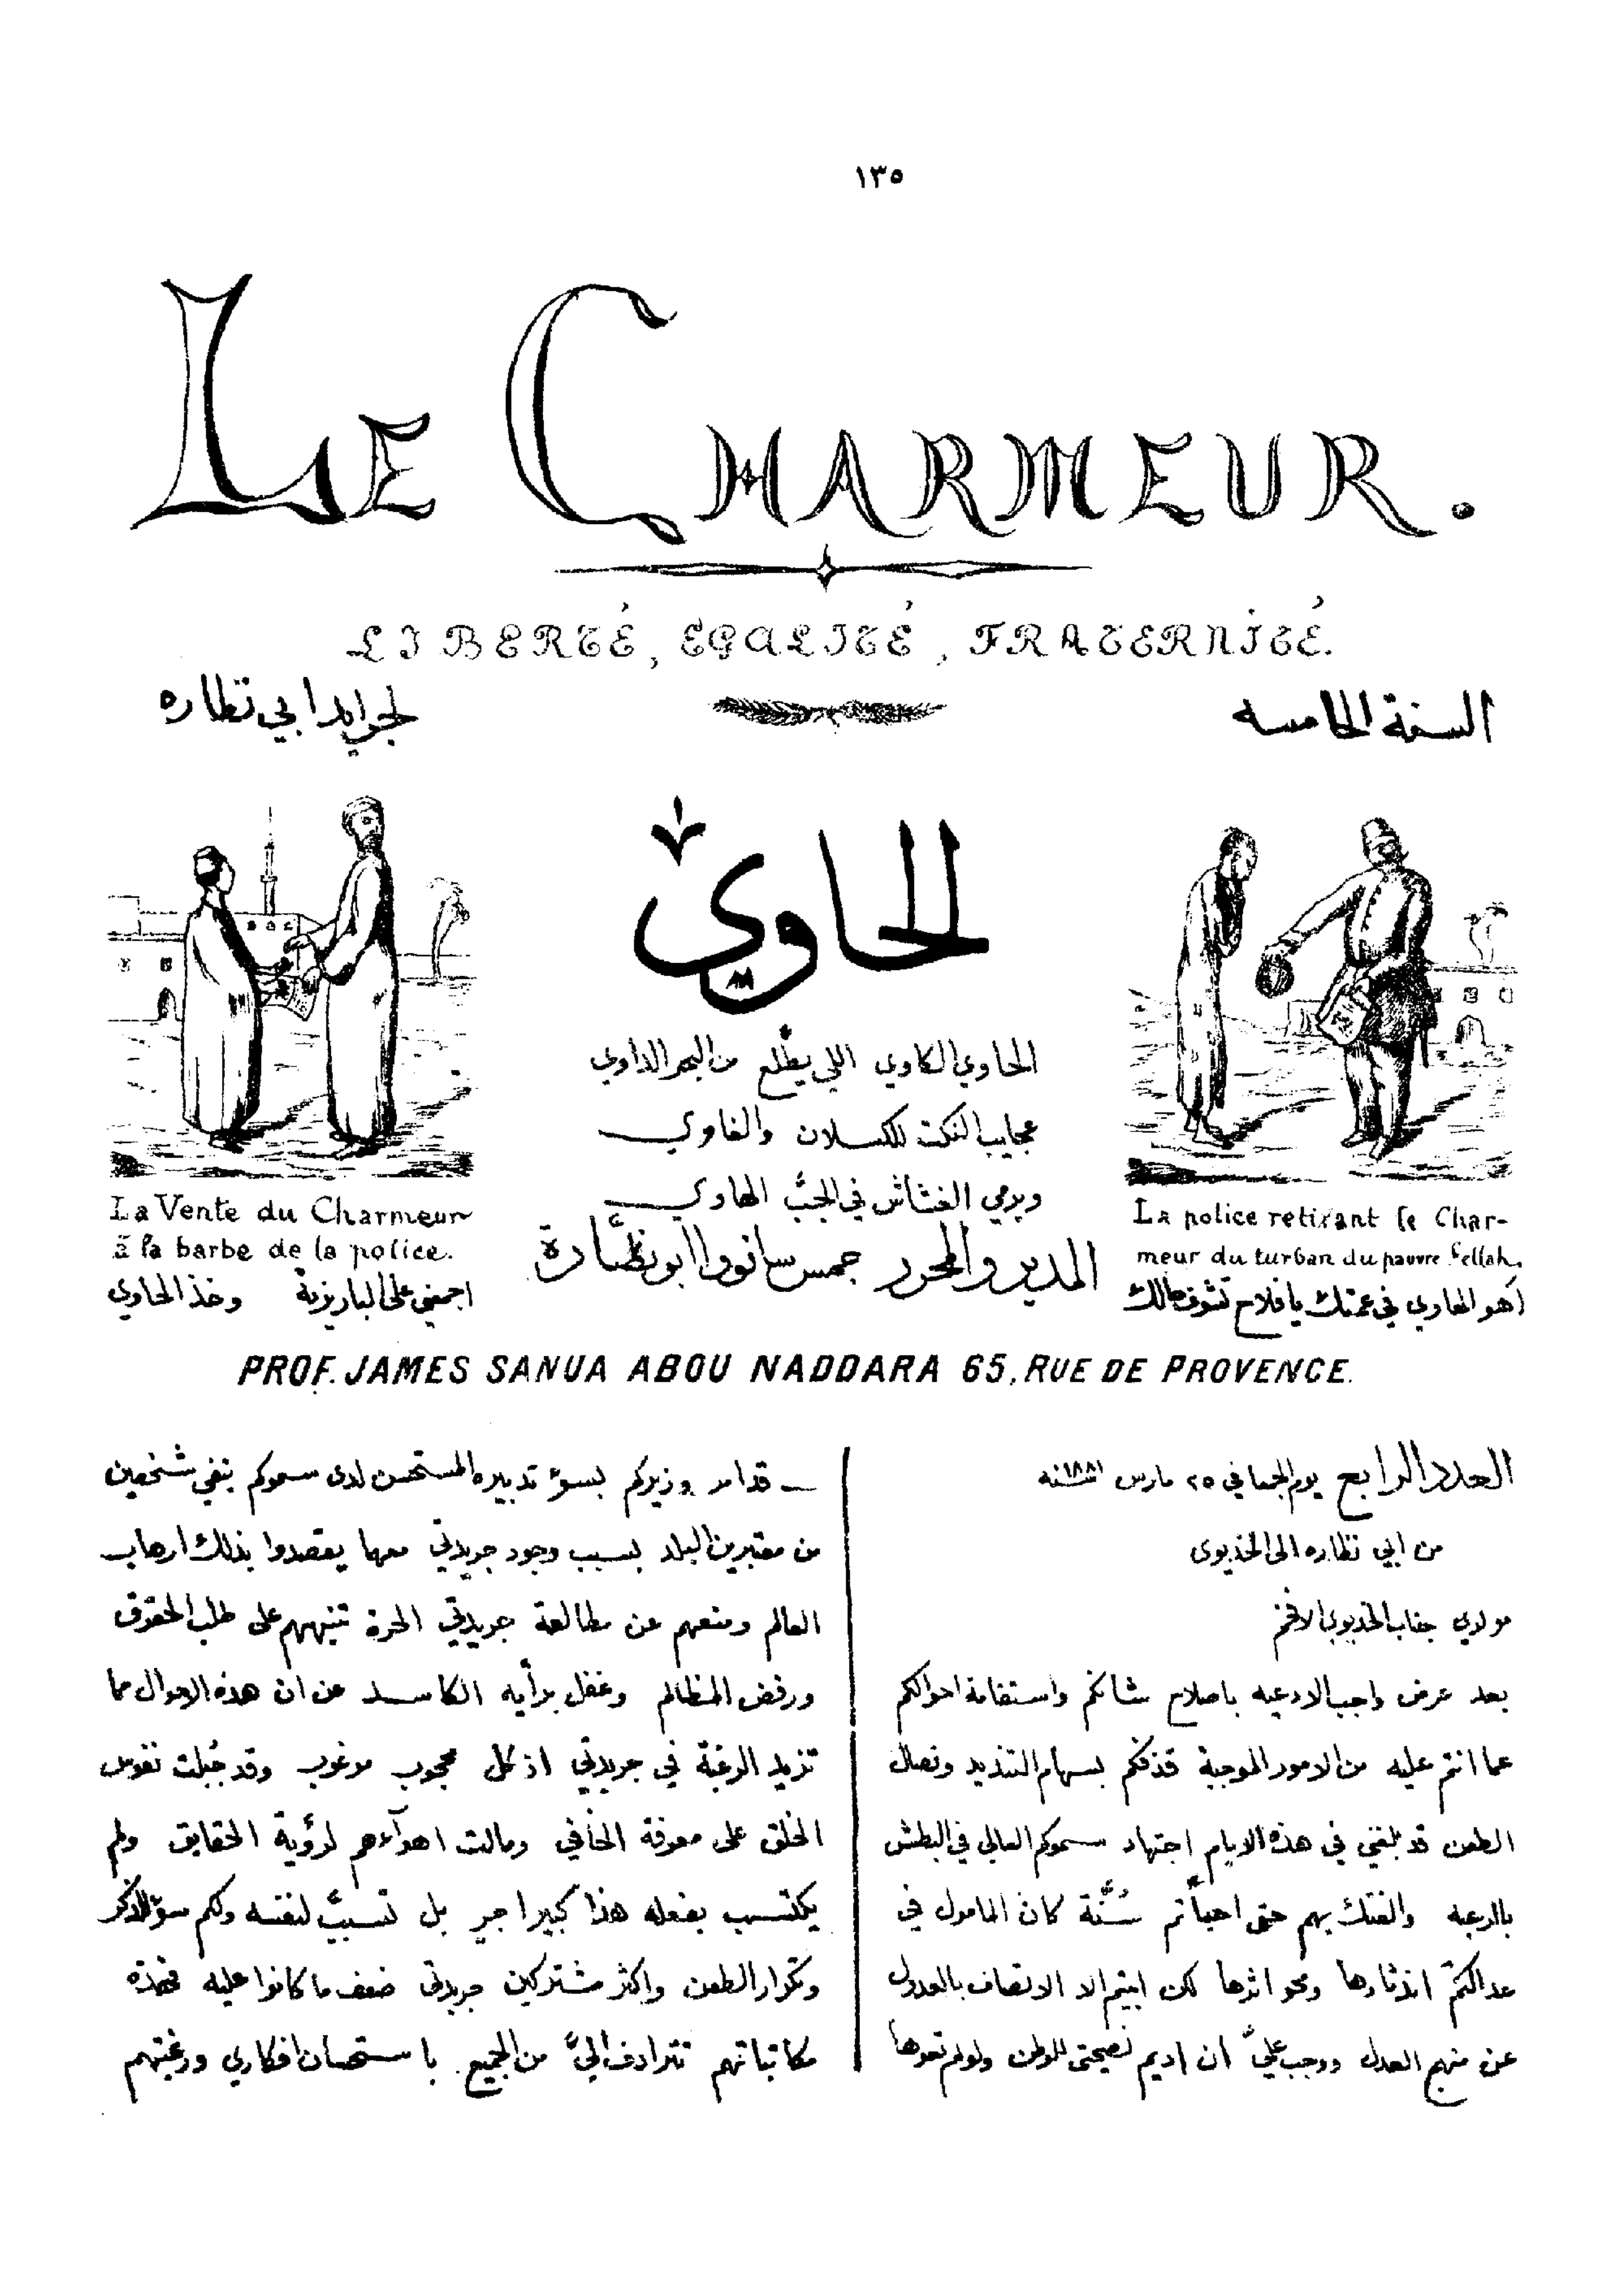 ١٣٥
LE CHARMEUR.
LIBERTÉ, ÉGALITÉ, FRATERNITÉ.
السنة الخامسه
لجرايد ابي نظاره
الحاوي
الحاوي الكاوي اللي يطلع من البحر الداوي
عجايب النكت للكسلان والغاوي
ويرمي الغشاش في الجبّ الهاوي
المدير والمحرر جمس سانووا ابو نظّارة
La Vente du Charmeur
à la barbe de la police.
اجمني على الباريزية وخذ الحاوي
La police retirant le Char-
meur du turban du pauvre fellah.
اهو الحاوي في عمتك يا فلاح تشوف حالك
PROF. JAMES SANUA ABOU NADDARA 65, RUE DE PROVENCE.
العدد الرابع يوم الجمعا في ٢٥ مارس ١٨٨١ سنه
من ابي نظاره الى الخديوى
مولدي جناب الخديوي الافخم
بعد عرض واجب الادعيه باصلاح شانكم واستقامة احوالكم
عما انتم عليه من الامور الموجبة قذفكم بسهام التنديد ونصال
الطعن قد بلغني في هذه الايام اجتهاد سموكم العالي في البطش
بالرعيه والفتك بهم حتى احيأتم سُنَّة كان المامول في
عدالتكم اندثارها ومحو اثرها لكن ابيتم الا الاتصاف بالعدول
عن منهج العدل ووجب عليّ ان اديم نصيحتى للوطن ولو لم تعوها
قدامر وزيركم بسوء تدبيره المستحسن لدى سموكم بنفي شخصين
من معتبرين البلد بسبب وجود جريدتي معهما يقصدوا بذلك ارهاب
العالم ومنعهم عن مطالعة جريدتي الحرة تنبههم على طلب الحقوق
ورفض المظالم وغفل برأيه الكاسد عن ان هذه الاحوال مما
تزيد الرغبة في جريدتي اذ كل محجوب مرغوب وقد جُبلت نفوس
الخلق على معرفة الخافي ومالت اهوآءهم لرؤية الحقايق ولم
يكتسب بفعله هذا كبير اجر بل تسببّ لنفسه ولكم سؤ الذكر
وتكرار الطعن واكثر مشتركين جريدتي ضعف ما كانوا عليه فهذه
مكاتباتهم تترادف اليّ من الجميع باستحسان افكاري ورغبتهم